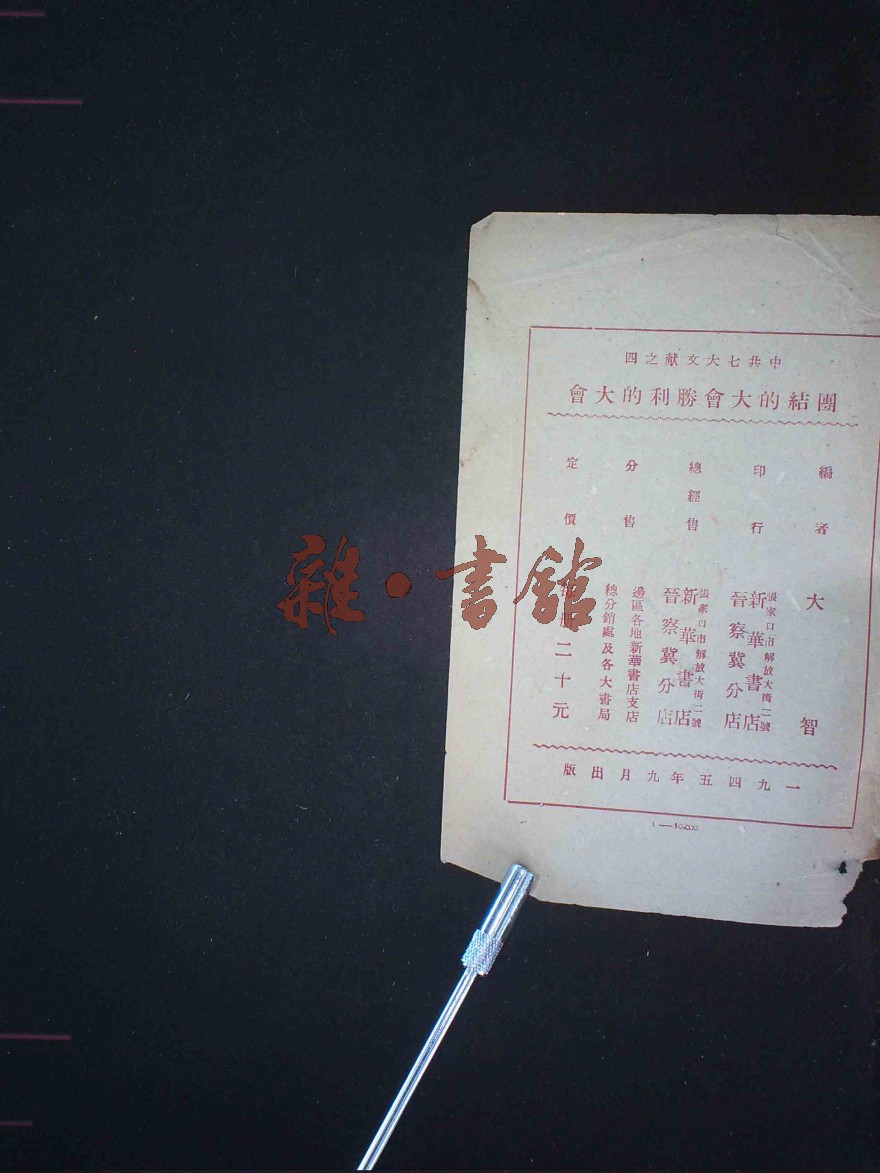 中共七大文献之四
團結的大會勝利的大會
編者 大智
印行 張家口市解放大街二號
新華書店
晉察冀分店
總經售 張家口市解放大街二號
新華書店
晉察冀分店
分售 邊區各地新華書店支店
總分銷處及各大書局
定價 每册二十元
一九四五年九月出版
1—10,000
雜·書館